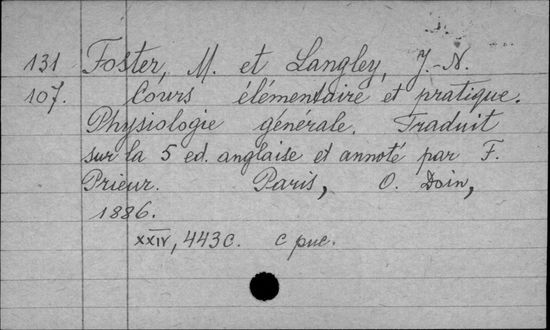 131 Foster, M. et Langley, J.-N.
107. Cours élémentaire et pratique.
Physiologie générale. Traduit
sur la 5 ed. anglaise et annoté par F.
Prieur. Paris, O. Doin,
1886.
XXIV, 443 с. с рис.